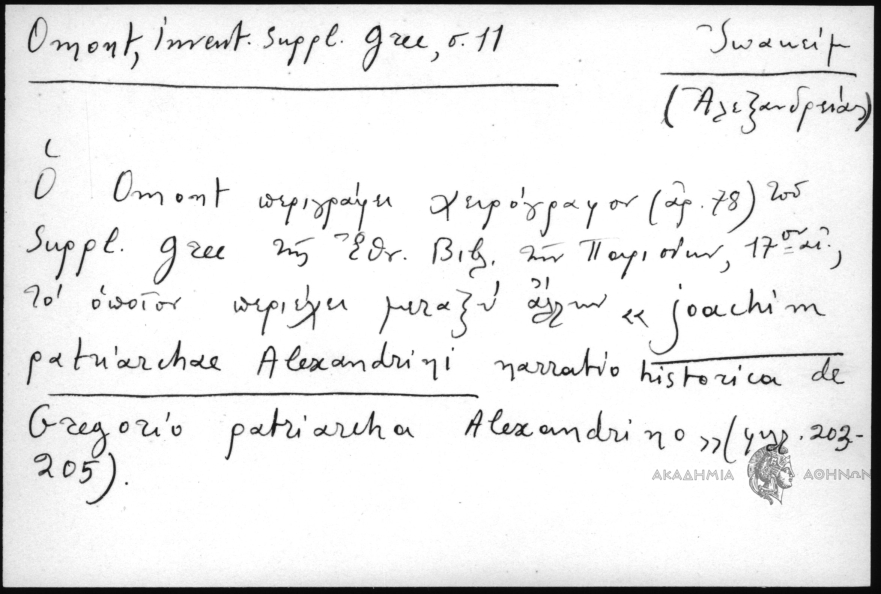 Omont, Invent. Suppl. Grec, σ. 11
Ἰωακείμ
(Ἀλεξανδρείας)
Ὁ Omont περιγράφει χειρόγραφον (ἀρ. 78) τοῦ
Suppl. Grec τῆς Ἐθν. Βιβλ. τῶν Παρισίων, 17ου αἰ.,
τὸ ὁποῖον περιέχει μεταξὺ ἄλλων « Joachim
patriarchae Alexandrini narratio historica de
Gregorio patriarcha Alexandrino » (φυλλ. 203-
205).
ΑΚΑΔΗΜΙΑ ΑΘΗΝΩΝ